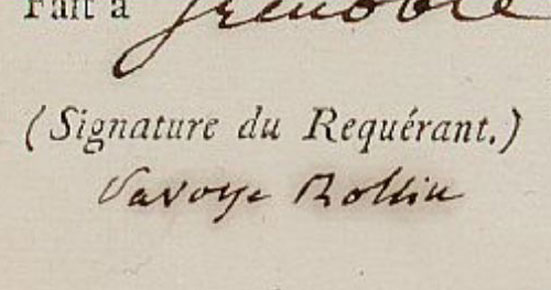 Fait à Grenoble
(Signature du Requérant.)
Savoye Rollin